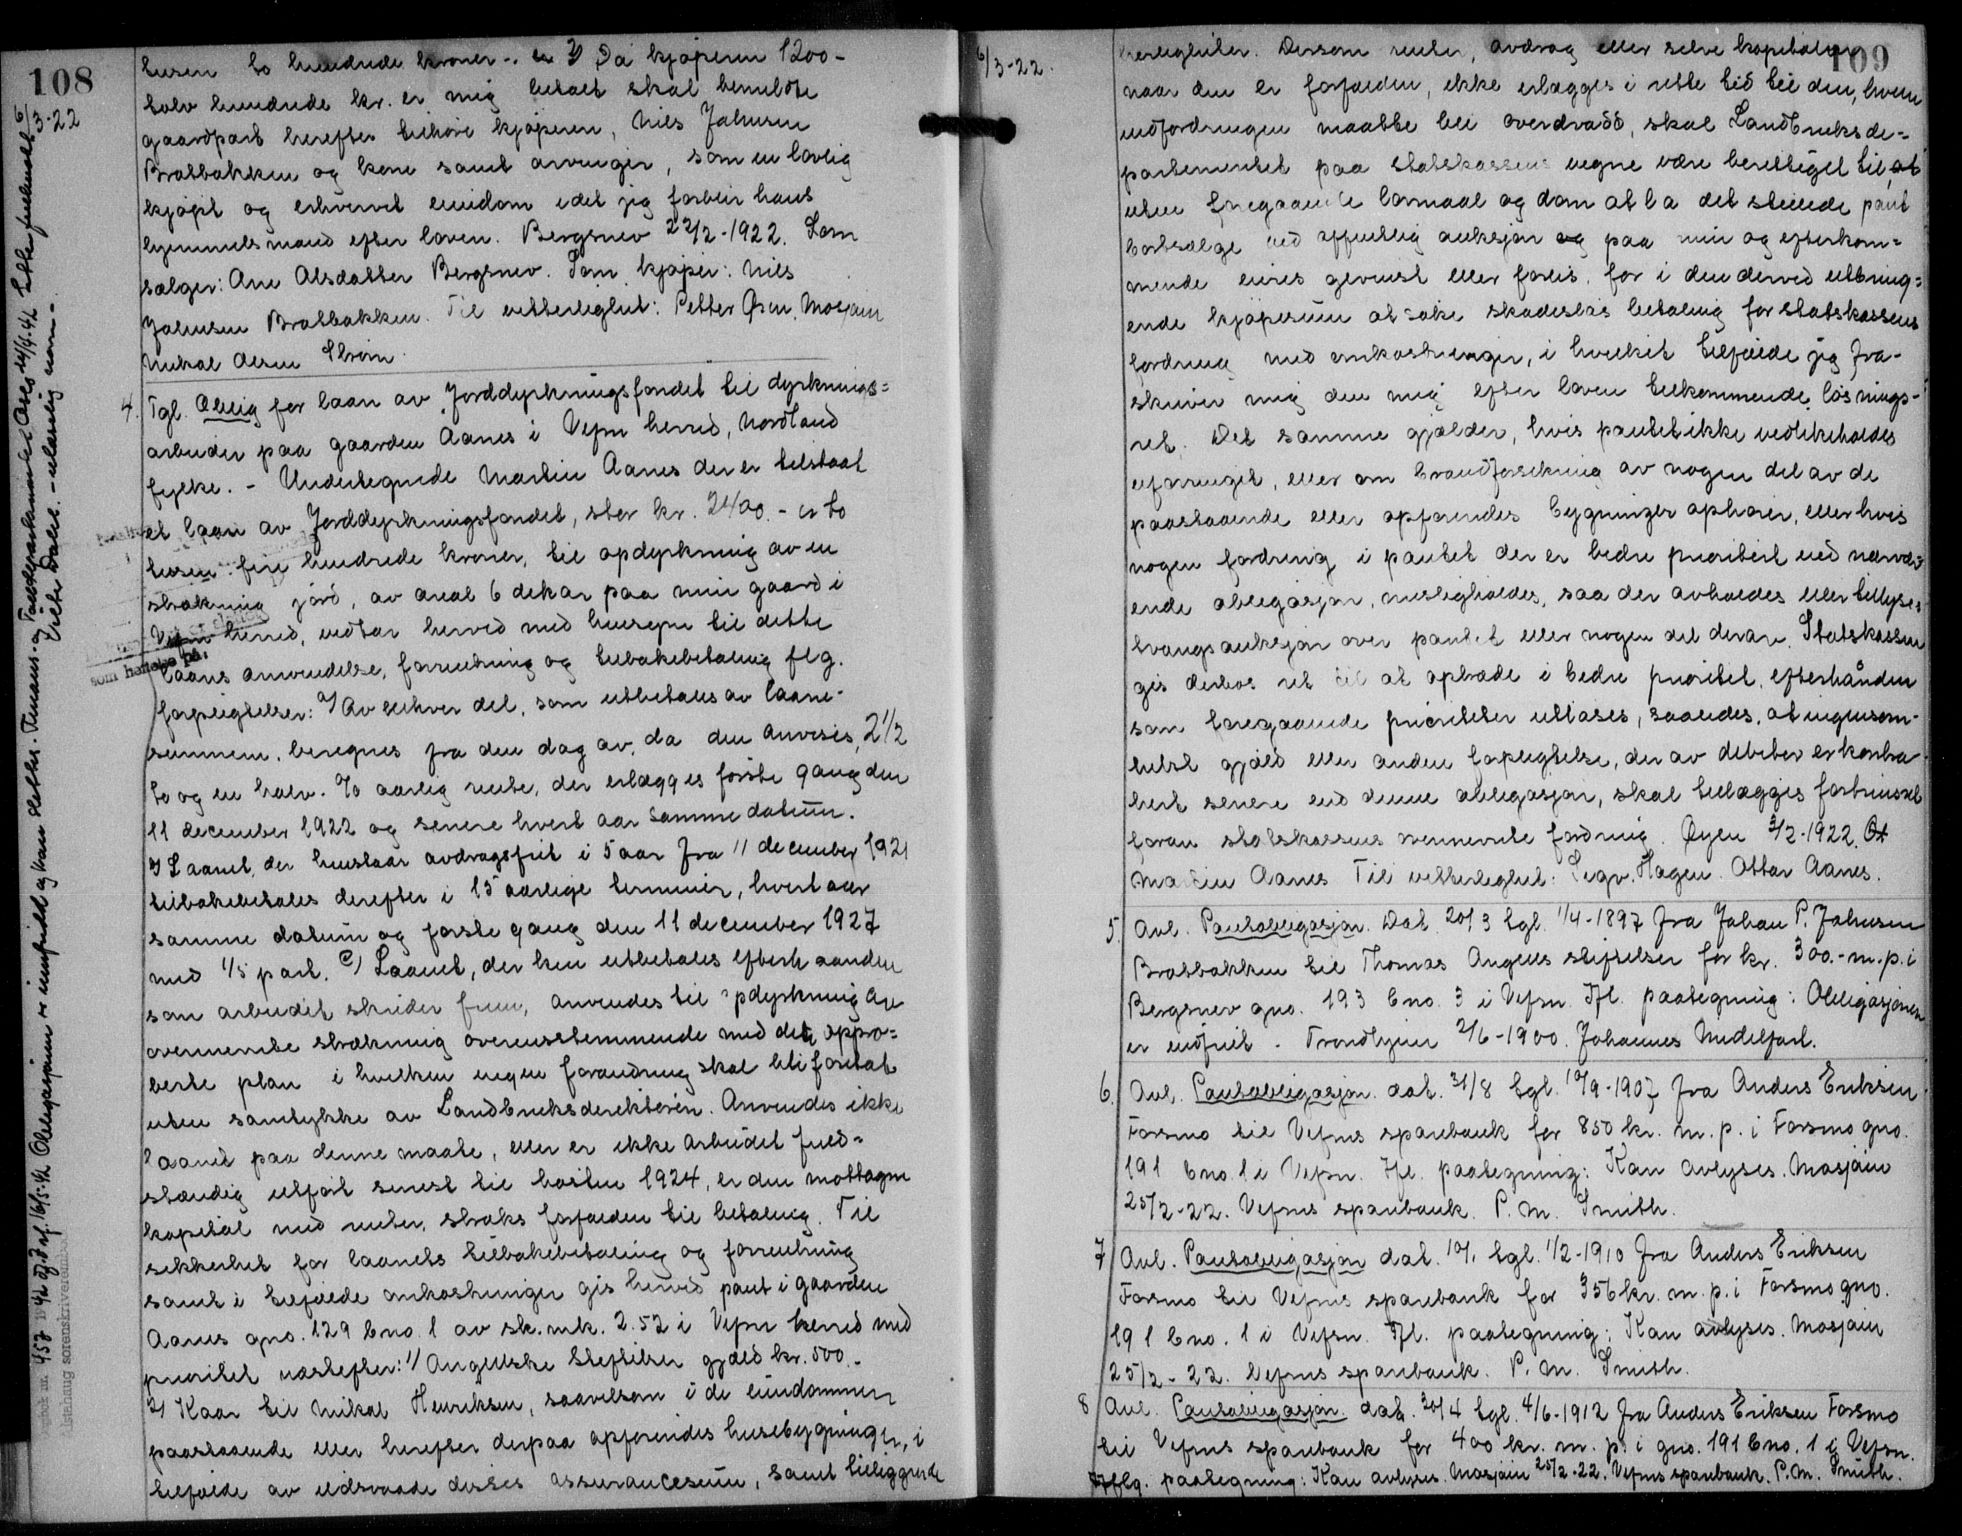 108
6/3-22
tusen to hundrede kroner.. 3) Da kjøperen 1200-
tolv hundrede kr. er mig betalt skal benævnte
gaardpart herefter tilhøre kjøperen, Nils Johnsen
Bratbakken og kone samt arvinger, som en lovlig
kjøpt og erhvervet eiendom idet jeg forblir hans
hjemmelsmand efter loven. Bergsnev 22/2-1922. Som
sælger: Ane Olsdatter Bergsnev. Som kjøper: Nils
Johnsen Bratbakken. Til vitterlighet: Petter Øien, Mosjøen
Mikal Olsen Strøm
4. Tgl. Oblig for laan av Jorddyrkningsfondet til dyrknings=
arbeider paa gaarden Aanes i Vefsn herred, Nordland
fylke. - Undertegnede Martin Aanes der er tilstaat
et laan av Jorddyrkningsfondet, stor kr. 2400.- er to
tusen fire hundrede kroner, til opdyrkning av en
strækning jord, av areal 6 dekar paa min gaard i
Vefsn herred, vedtar herved med hensyn til dette
som heftelse på:
laans anvendelse, forrentning og tilbakebetaling flg.
forpligtelser: a) Av enhver del, som utbetales av laane-
summen, beregnes fra den dag av, da den anvises, 2 1/2
to og en halv % aarlig rente, der erlægges første gang den
11 december 1922 og senere hvert aar samme datum.
b) Laanet, der henstaar avdragsfrit i 5 aar fra 11 december 1921
tilbakebetales derefter i 15 aarlige terminer, hvert aar
samme datum og første gang den 11 december 1927
med 1/15 part. c) Laanet, der kun utbetales efterhaanden
som arbeidet skrider frem, anvendes til opdyrkning av
ovennævnte strækning overensstemmende med den appro=
berte plan i hvilken ingen forandring skal bli foretat
uten samtykke av Landbruksdirektøren. Anvendes ikke
laanet paa denne maate, eller er ikke arbeidet fuld=
stændig utført senest til høsten 1924, er den mottagne
kapital med renter, straks forfalden til betaling. Til
sikkerhet for laanets tilbakebetaling og forrentning
samt i tilfælde omkostninger gis herved pant i gaarden
Aanes gno. 129 bno. 1 av sk.mk. 2.52 i Vefsn herred med
prioritet næstefter: 1) Angellske Stiftelser gjæld kr. 500.-
2) Kaar til Mikal Henriksen, saavelsom i de eiendommen
paastaaende eller herefter derpaa opførendes husebygninger, i
tilfælde av ildsvaade disses assurancesum, samt tilliggende
6/3-22.
109
herligheter. Dersom renter, avdrag eller selve kapitalen
naar den er forfalden, ikke erlægges i rette tid til den, hvem
indfordringen maatte bli overdradd, skal Landbruksde=
partementet paa statskassens vegne være berettiget til, at
uten foregaaende lovmaal og dom at la det stillede pant
bortsælge ved offentlig auksjon og paa min og efterkom=
mende eieres gevinst eller forlis, for i den derved utbring=
ende kjøpesum at søke skadesløs betaling for statskassens
fordring med omkostninger, i hvilket tilfælde jeg fra-
skriver mig den mig efter loven tilkommende løsnings-
ret. Det samme gjælder, hvis pantet ikke vedlikeholdes
uforringet, eller om brandforsikring av nogen del av de
paastaaende eller opførendes bygninger ophører, eller hvis
nogen fordring i pantet der er bedre prioritert end nærvær=
ende obligasjon, misligholdes, saa der avholdes eller tillyses
tvangsauksjon over pantet eller nogen del derav. Statskassen
gis derhos ret til at optræde i bedre prioritet, efterhånden
som foregaaende prioriteter utløses, saaledes, at ingensom-
helst gjæld eller anden forpligtelse, der av debitor er kontra-
hert senere end denne obligasjon, skal tillægges fortrinsret
foran statskassens nævnte fordring. Øyen 3/2-1922.
Martin Aanes Til vitterlighet: Sigv. Hagen. Ottar Aanes.
5. Avl. Pantobligasjon. Dat. 20/3 tgl. 1/4-1897 fra Johan P. Johnsen
Bratbakken til Thomas Angells stiftelser for kr. 300.- m.p. i
Bergsnev gno. 193 bno. 3 i Vefsn. Ifl. paategning: Obligasjonen
er indfriet. Trondhjem 2/6-1900. Johannes Midelfart.
6. Avl. Pantobligasjon. dat. 31/8 tgl. 10/9-1907 fra Anders Eriksen
Forsmo til Vefsns sparebank for 850 kr. m. p. i Forsmo gno.
191 bno. 1 i Vefsn. Ifl. paategning: Kan avlyses. Mosjøen
25/2-22. Vefsns sparebank. P. M. Smith.
7 Avl. Pantobligasjon dat. 10/1 tgl. 1/2-1910 fra Anders Eriksen
Forsmo til Vefsns sparebank for 356 kr. m. p. i Forsmo gno.
191 bno. 1 i Vefsn. Ifl. paategning: Kan avlyses. Mosjøen
25/2-22. Vefsns sparebank. P. M. Smith.
8 Avl. Pantobligasjon. dat. 30/4 tgl. 4/6-1912 fra Anders Eriksen Forsmo
til Vefsns sparebank for 400 kr. m. p. i gno. 191 bno. 1 i Vefsn.
Iflg. paategning: Kan avlyses. Mosjøen 25/2-22. Vefsns sparebank. P. M. Smith.